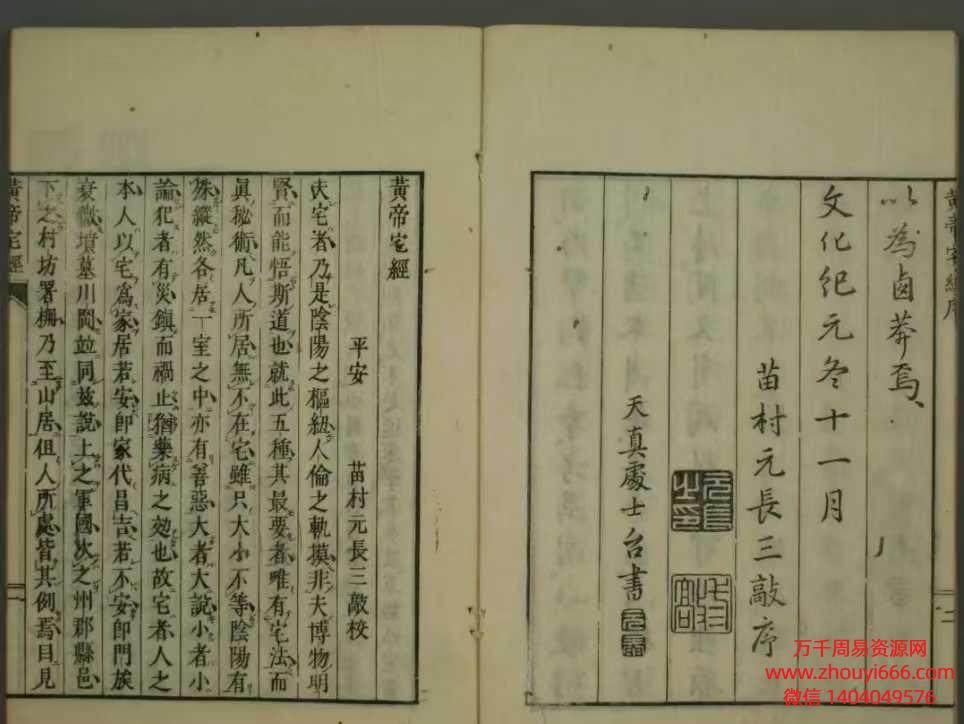 黃帝宅經序
以為鹵莽焉
文化紀元冬十一月
苗村元長三敲序
元長之印
天真處士台書
黃帝宅經
平安 苗村元長三敲校
夫宅者乃是陰陽之樞紐人倫之軌摸非夫博物明
賢而能悟斯道也就此五種其最要者唯有宅法而
眞秘術凡人所居無不在宅雖只大小不等陰陽有
殊縱然各居一室之中亦有善惡大者大說小者小
論犯者有災鎮而禍止猶藥病之効也故宅者人之
本人以宅爲家居若安即家代昌吉若不安即門族
衰微墳墓川岡並同茲說上之軍國次之州郡縣邑
下之村坊署柵乃至山居但人所處皆其例焉目見
黃帝宅經
一
万千周易资源网
www.zhouyi666.com
微信 1404049576